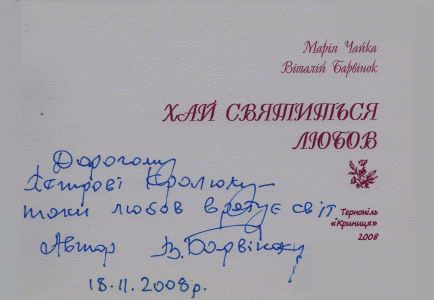 Марія Чайка
Віталій Барвінок
ХАЙ СВЯТИТЬСЯ
ЛЮБОВ
Дорогому
Петрові Кралюку –
токи любов врятує світ
Автор В. Барвінок
Тернопіль
«Криниця»
2008
18.11.2008р.